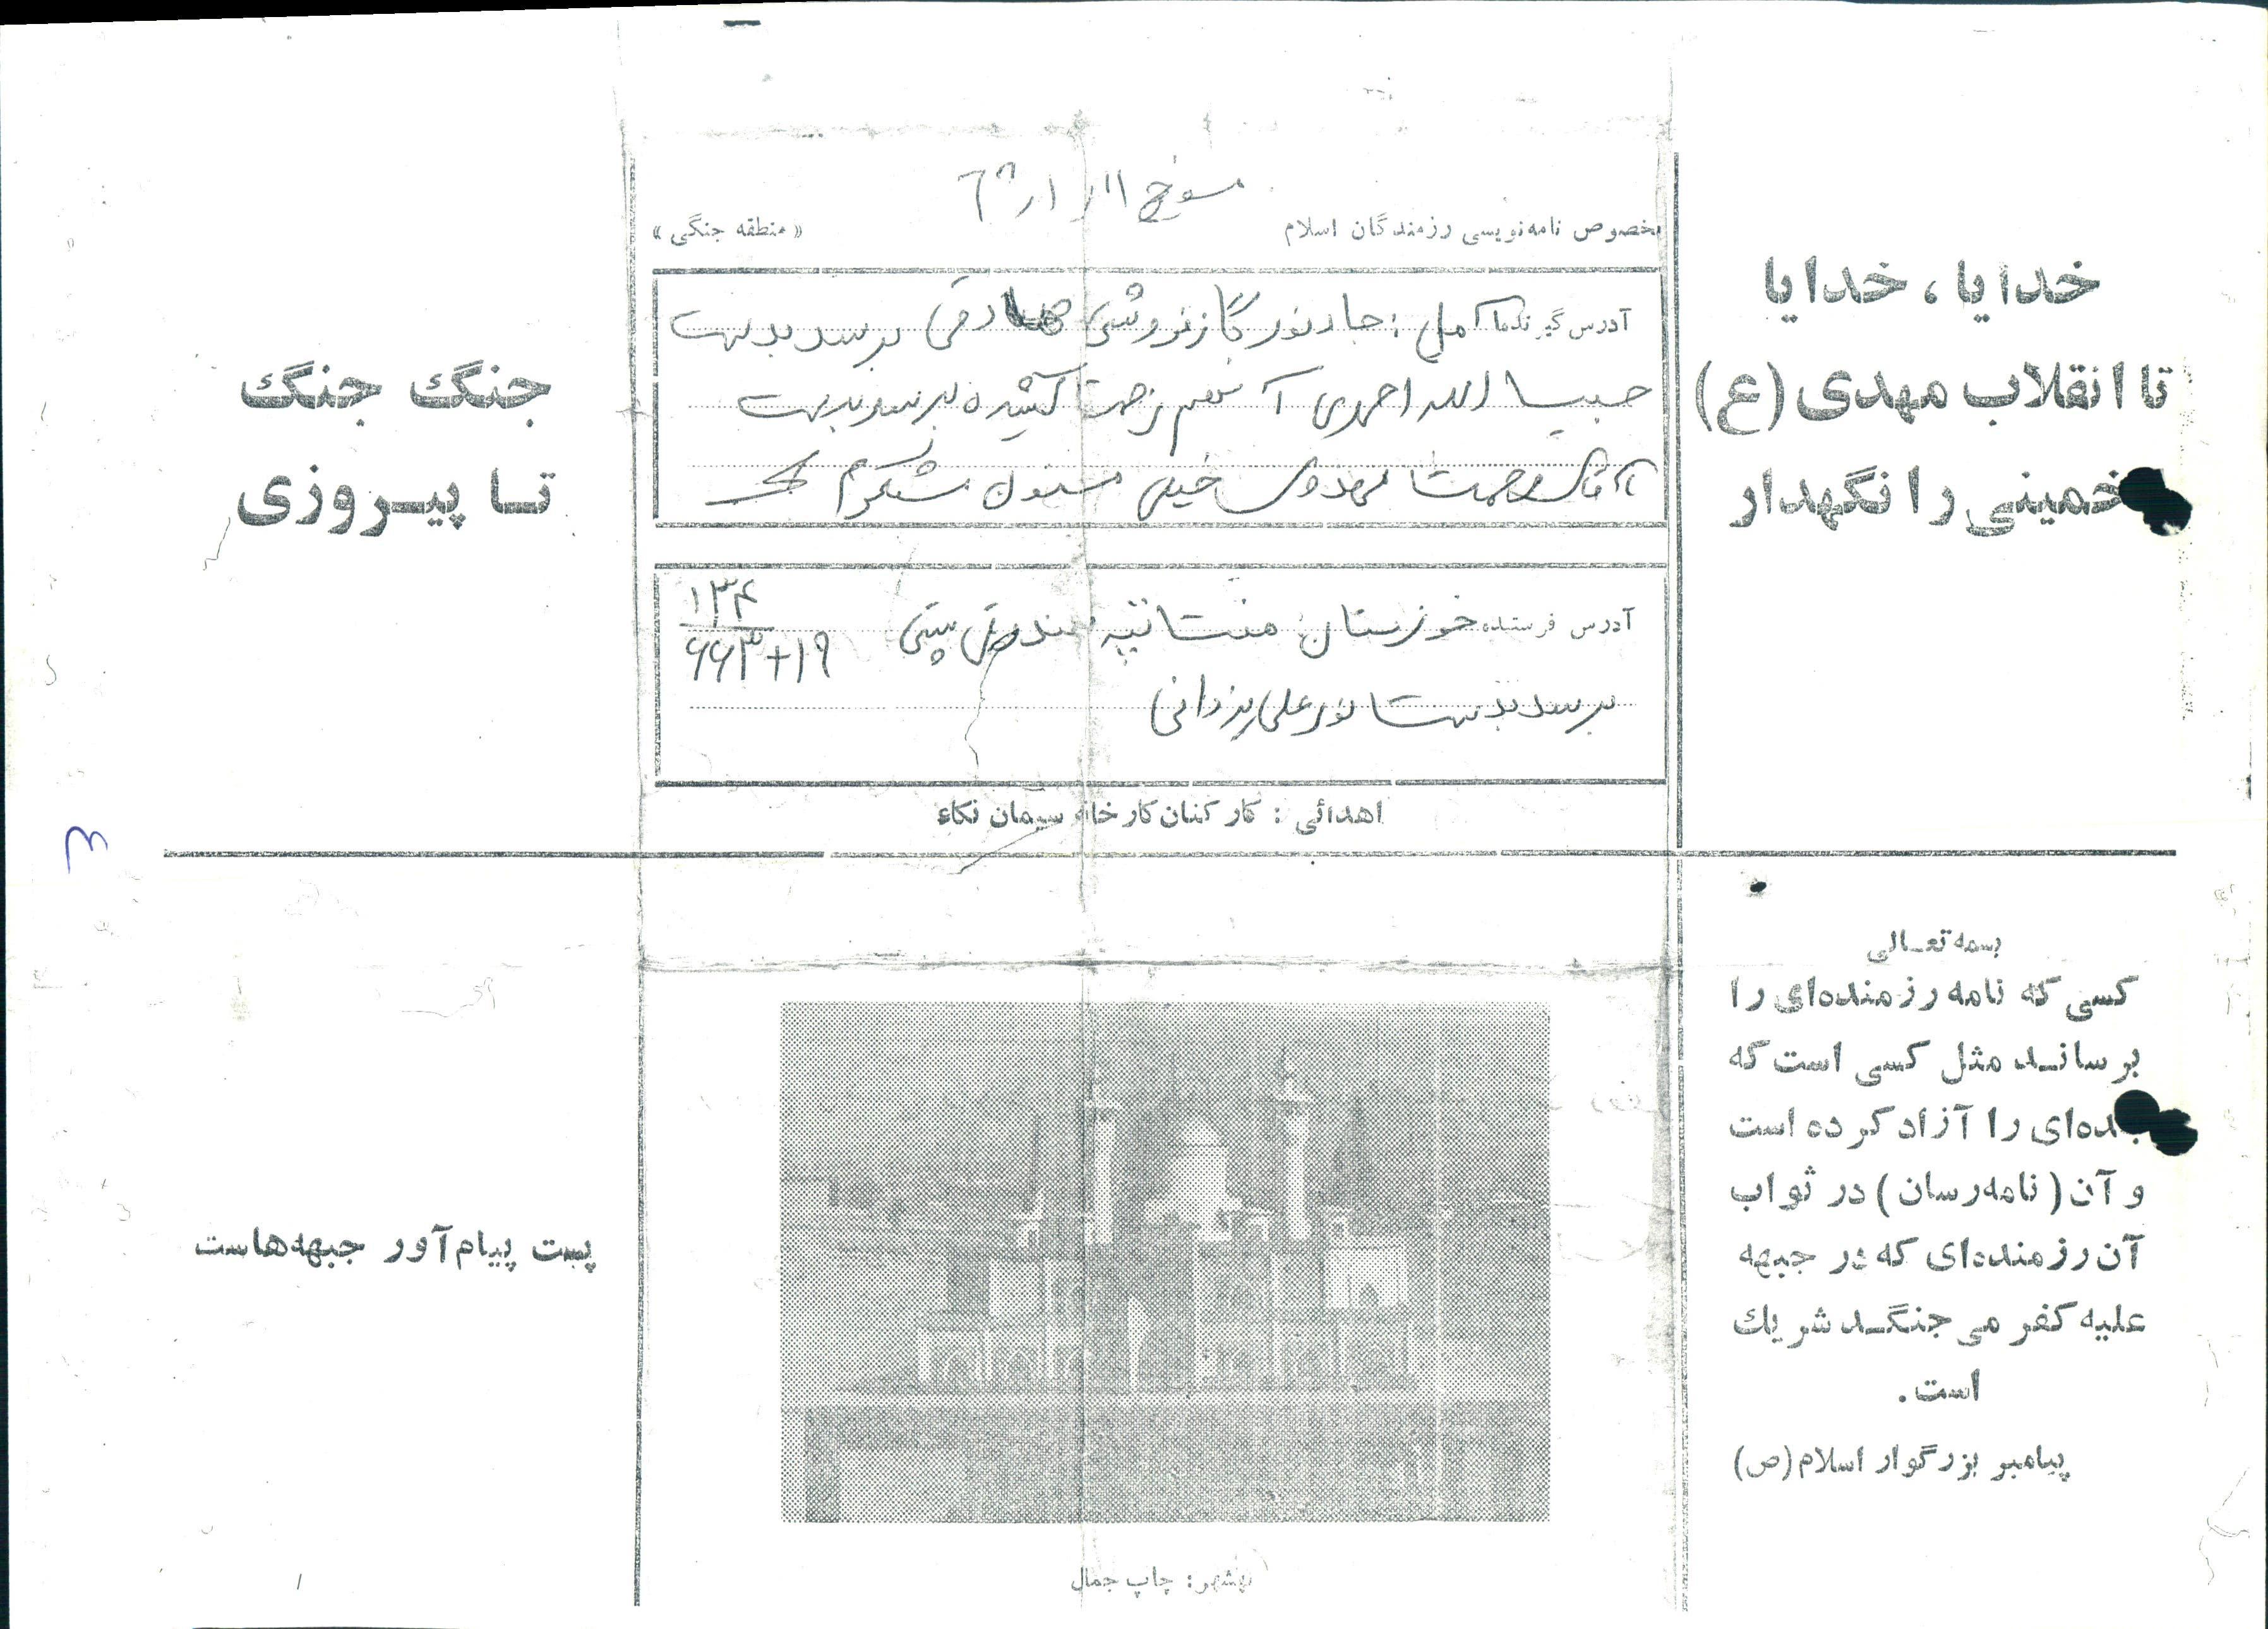 مورخ
مخصوص نامه‌نویسی رزمندگان اسلام
«منطقه جنگی»
خدایا ، خدایا
تا انقلاب مهدی (ع)
خمینی را نگهدار
آدرس گیرنده کامل : گاز فروشی صادقی برسد بدست
حبیب الله احمدی زحمت کشیده برسد بدست
رحمت مهدوی خیلی ممنون متشکرم
آدرس فرستنده خوزستان صندوق پستی
۱۳۴
۶۶۳+۱۹
برسد بدست نورعلی یزدانی
اهدائی : کارکنان کارخانه سیمان نکاء
جنگ جنگ
تا پیروزی
بسمه تعالی
کسی که نامه رزمنده‌ای را
برساند مثل کسی است که
بنده‌ای را آزاد کرده است
و آن ( نامه‌رسان ) در ثواب
آن رزمنده‌ای که در جبهه
علیه کفر می جنگد شریك
است .
پیامبر بزرگوار اسلام (ص)
بهشهر: چاپ جمال
پست پیام‌آور جبهه‌هاست
۳